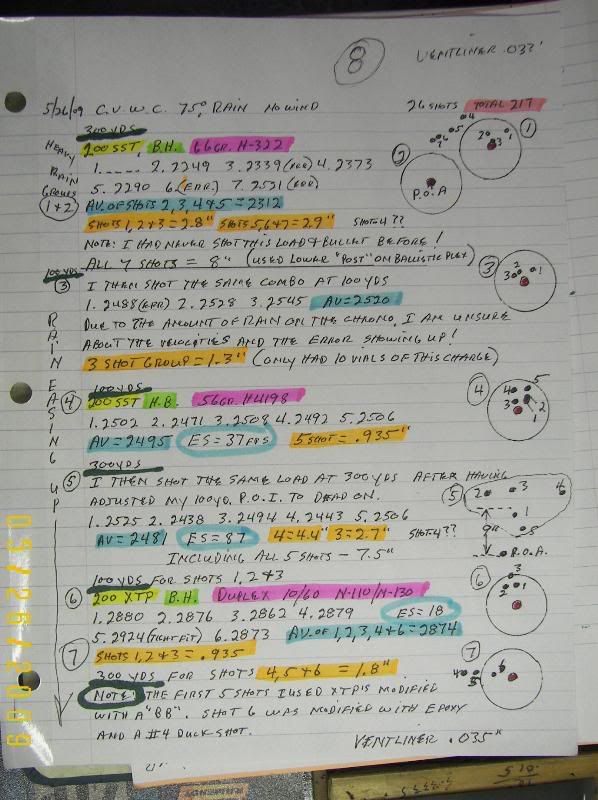 8
VENTLINER .033"
5/26/09 C.V.W.C. 75° RAIN NO WIND
26 SHOTS TOTAL 217
300 YDS
HEAVY RAIN GROUPS 1+2
200 SST, B.H. 66GR. H-322
1. ---- 2. 2249 3. 2339 (ERR) 4. 2373
5. 2290 6. (ERR) 7. 2531 (ERR)
AV. OF SHOTS 2, 3, 4 & 5 = 2312
SHOTS 1, 2 + 3 = 2.8" SHOTS 5, 6 & 7 = 2.9" SHOT 4 ??
NOTE: I HAD NEVER SHOT THIS LOAD & BULLET BEFORE!
ALL 7 SHOTS = 8" (USED LOWER "POST" ON BALLISTIC PLEX)
100 YDS
3 I THEN SHOT THE SAME COMBO AT 100 YDS
1. 2488 (ERR) 2. 2528 3. 2545 AV = 2520
DUE TO THE AMOUNT OF RAIN ON THE CHRONO, I AM UNSURE
ABOUT THE VELOCITIES AND THE ERROR SHOWING UP!
3 SHOT GROUP = 1.3" (ONLY HAD 10 VIALS OF THIS CHARGE)
RAIN EASING UP
100 YDS
4 200 SST H.B. 56GR. H4198
1. 2502 2. 2471 3. 2508 4. 2492 5. 2506
AV = 2495 ES = 37 FPS 5 SHOT = .935"
300 YDS
5 I THEN SHOT THE SAME LOAD AT 300 YDS AFTER HAVING
ADJUSTED MY 100 YD. P.O.I. TO DEAD ON.
1. 2525 2. 2438 3. 2494 4. 2443 5. 2506
AV = 2481 ES = 87 4 = 4.4" 3 = 2.7" SHOT 4??
INCLUDING ALL 5 SHOTS - 7.5"
100 YDS FOR SHOTS 1, 2 + 3
6 200 XTP B.H. DUPLEX 10/60 N-110/N-130
1. 2880 2. 2876 3. 2862 4. 2879 ES = 18
5. 2924 (TIGHT FIT) 6. 2873 AV. OF 1, 2, 3, 4 + 6 = 2874
7 SHOTS 1, 2 + 3 = .935
300 YDS FOR SHOTS 4, 5 + 6 = 1.8"
NOTE: THE FIRST 5 SHOTS I USED XTP'S MODIFIED
WITH A "BB". SHOT 6 WAS MODIFIED WITH EPOXY
AND A #4 DUCK SHOT.
VENTLINER .035"
4 5 6 7
2 1 3
1
2
P.O.A
3
2 3 1
4
4 5 3 2 1
5
2 3 4 1 5
P.O.A.
6
3 2 1
7
4 5 6
05/26/2009